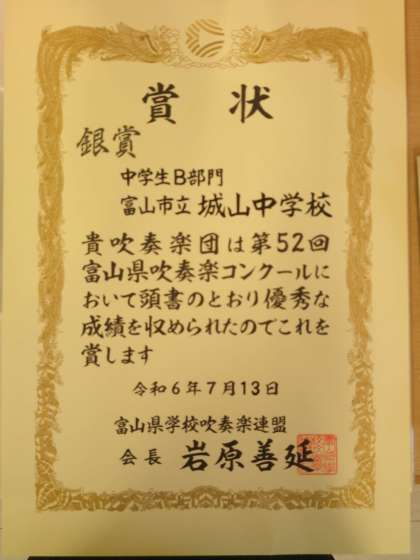 賞状
銀賞
中学生B部門
富山市立 城山中学校
貴吹奏楽団は第52回
富山県吹奏楽コンクールに
おいて頭書のとおり優秀な
成績を収められたのでこれを
賞します
令和6年7月13日
富山県学校吹奏楽連盟
会長 岩原善延